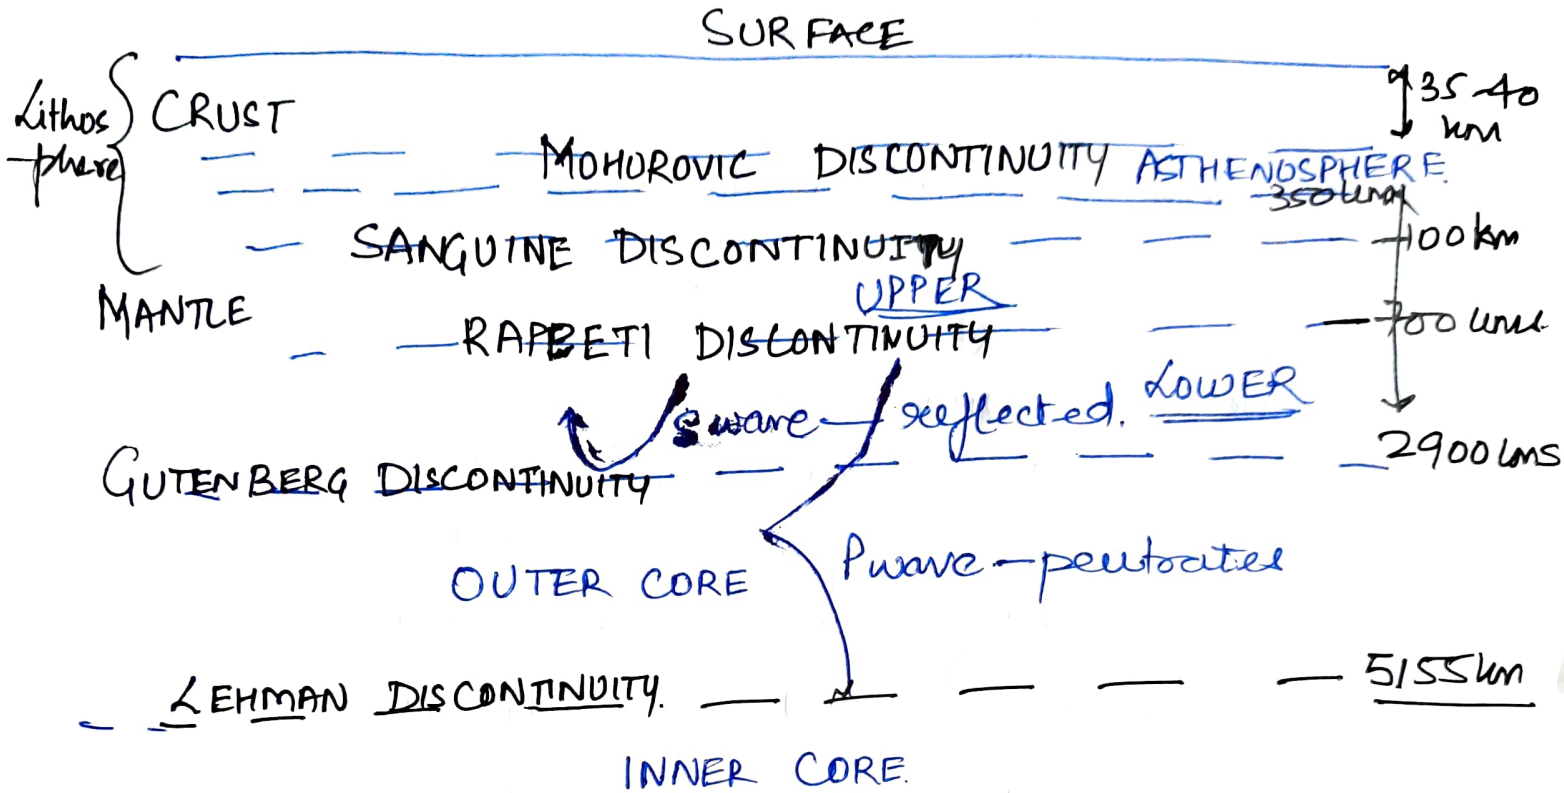 SURFACE
Lithos
-phere
CRUST
35-40
km
MOHOROVIC DISCONTINUITY ASTHENOSPHERE
350km
SANGUINE DISCONTINUITY
100km
MANTLE
UPPER
RAPBETI DISCONTINUITY
700 kms
S wave - reflected. LOWER
GUTENBERG DISCONTINUITY
2900 kms
OUTER CORE
P wave - pentrates
LEHMAN DISCONTINUITY.
5155km
INNER CORE.